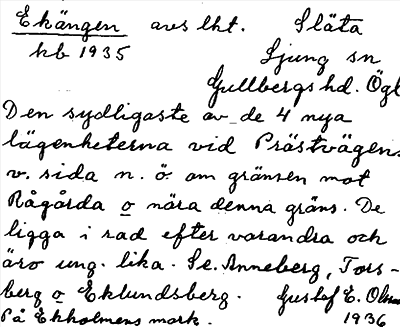 Ekängen avs lht. Släta
kb 1935 Ljung sn
Gullbergs hd. Ögl
Den sydligaste av de 4 nya
lägenheterna vid Prästvägens
v. sida n. ö om gränsen mot
Rågårda o nära denna gräns. De
ligga i rad efter varandra och
äro ung. lika. Se. Anneberg, Tors-
berg o Eklundsberg. Gustaf E. Olsson
På Ekholmens mark. 1936